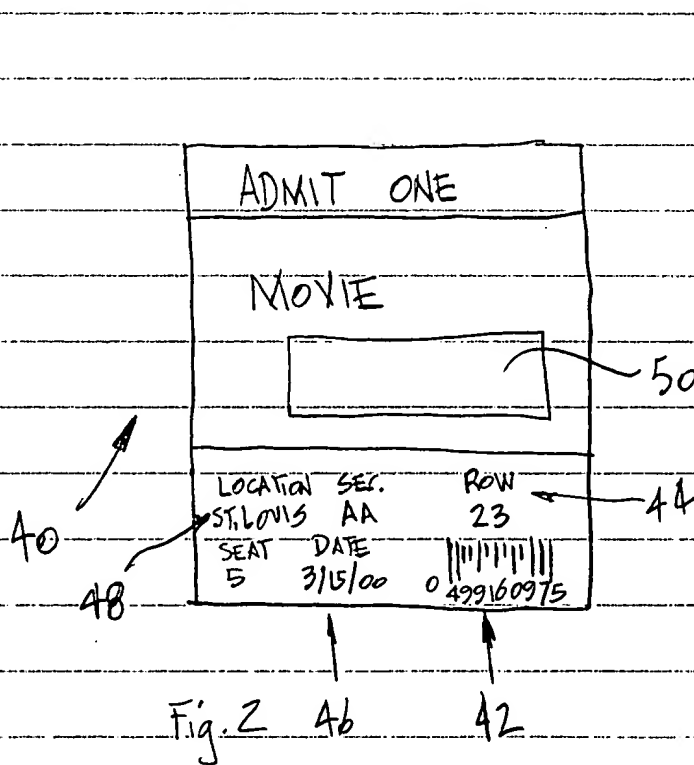 ADMIT ONE
MOVIE
50
LOCATION SEC. ROW
44
ST. LOUIS AA 23
40
SEAT DATE
5 3/15/00 0 499160975
48
Fig. 2 46 42